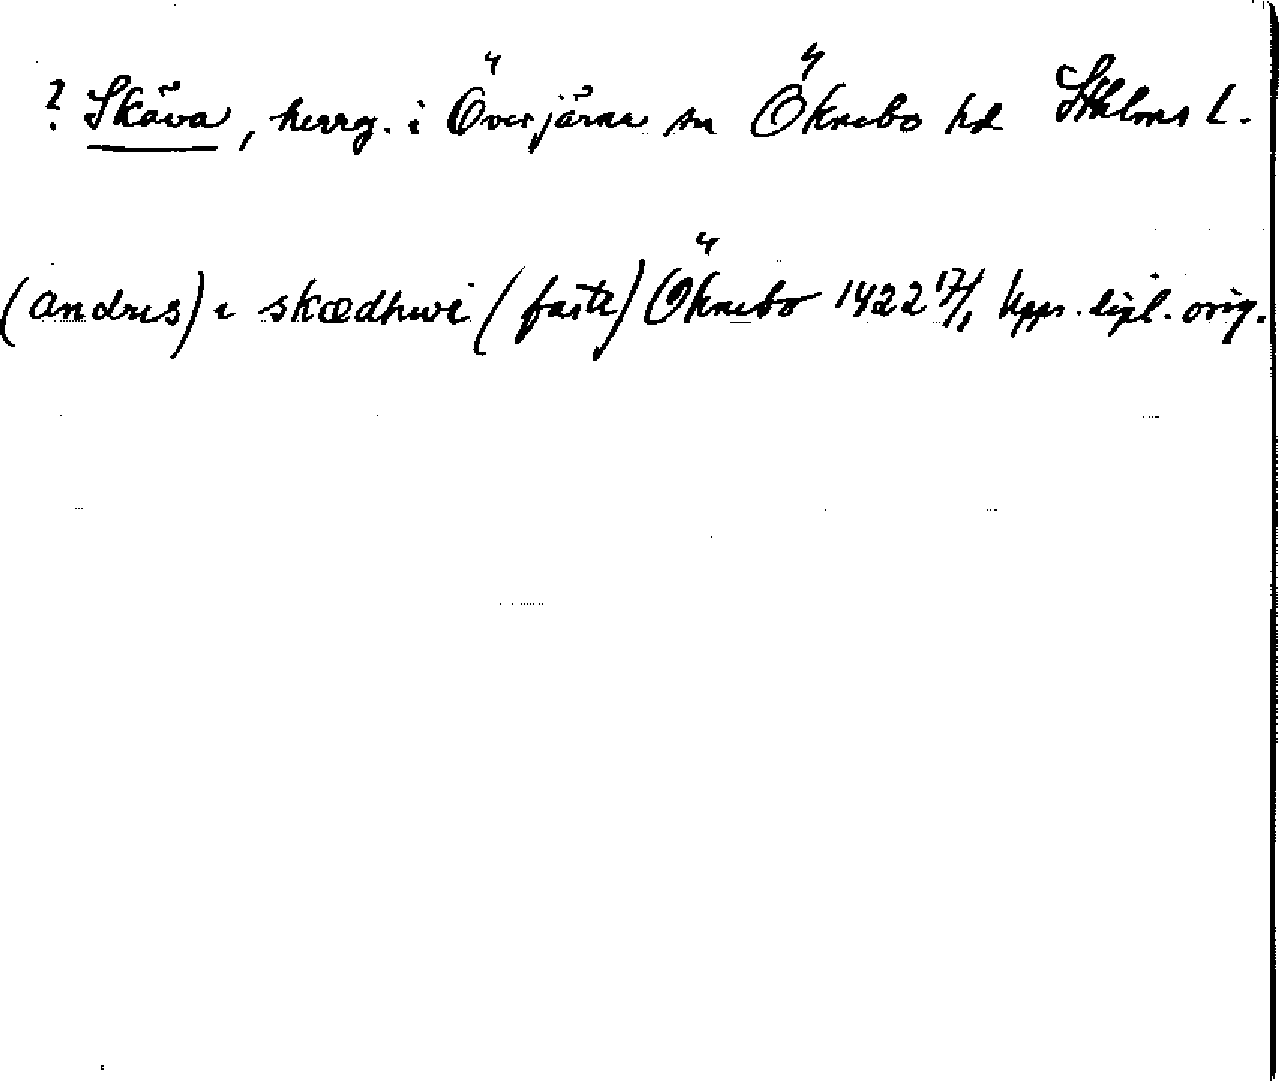 ? Skäva, herrg. i Överjärna sn Öknebo hd Sthlms l.
(andres) i skædhwi (faste) Öknebo 1422 17/1 Upps. dipl. orig.